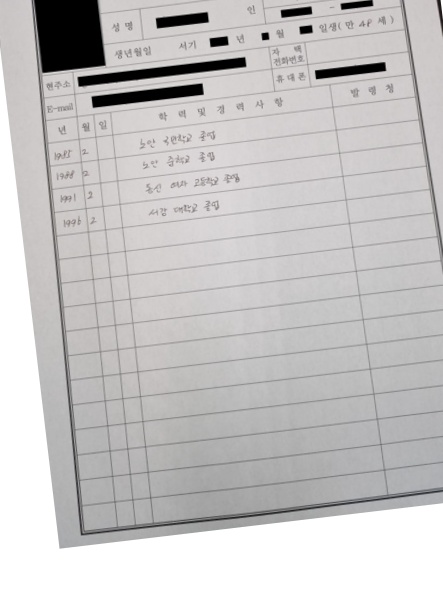 성 명 인
생년월일 서기 년 월 일생( 만 48 세 )
현주소 자 택 전화번호
E-mail 휴 대 폰
년 월 일 학 력 및 경 력 사 항 발 령 청
1985 2 노안 국민학교 졸업
1988 2 노안 중학교 졸업
1991 2 동신 여자 고등학교 졸업
1996 2 서강 대학교 졸업